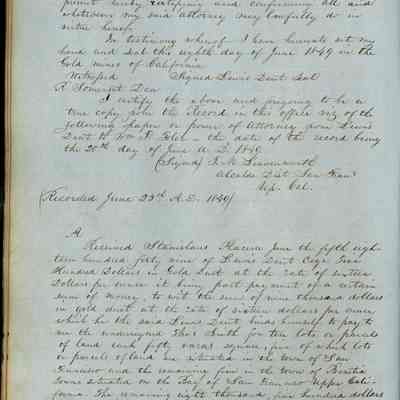 permit hereby ratifying and confirming all and
whatsoever my said Attorney may lawfully do in
virtue hereof
In testimony whereof I have hereunto set my
hand and Seal this the eighth day of June 1849 in the
Gold mines of California
Witnessed Signed Lewis Dent Seal
R Somerset Den
I certify the above and foregoing to be a
true copy from the Record in this office viz of the
following paper or power of Attorney from Lewis
Dent to Wm the date of the record being
the 25th day of June A. D. 1849
(Signed)
Alcalde Dist San Fran
Up. Cal.
(Recorded June 25th A.D. 1849)
A
Received Stanislaus June the fifth eigh-
teen hundred forty nine of Lewis Dent Five
Hundred Dollars in Gold Dust at the rate of sixteen
Dollars per ounce it being part payment of a certain
sum of money, to wit the sum of nine thousand dollars
in gold dust at the rate of sixteen dollars per ounce
which he the said Lewis Dent binds himself to pay to
me the undersigned for ten lots or parcels
of land each fifty varas square, five of which lots
or parcels of land are situated in the town of San
Francisco and the remaining five in the town of Benitia
Towns situated on the Bay of San Francisco Upper Cali-
fornia. The remaining eight thousand five hundred dollars